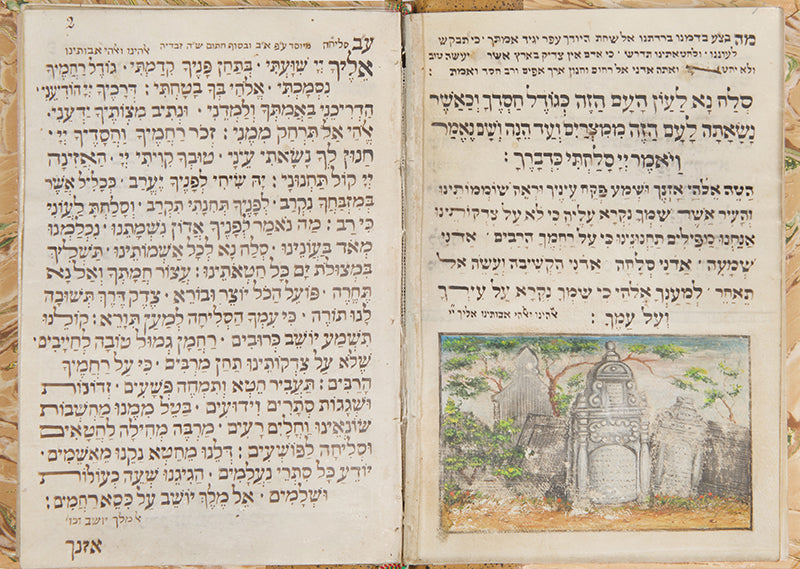 מה בצע בדמנו ברדתנו אל שחת היודך עפר יגיד אמתך · כי תבקש
לעוננו · ולחטאתינו תדרש · כי אדם אין צדיק בארץ אשר יעשה טוב
ולא יחטא ואתה אדני אל רחום וחנון ארך אפים ורב חסד ואמת :
סלח נא לעון העם הזה כגודל חסדך וכאשר
נשאתה לעם הזה ממצרים ועד הנה ושם נאמר
ויאמר יי סלחתי כדברך :
הטה אלהי אזנך ושמע פקח עיניך וראה שוממותינו
והעיר אשר שמך נקרא עליה כי לא על צדקותינו
אנחנו מפילים תחנונינו כי על רחמך הרבים · אדני
שמעה · אדני סלחה אדני הקשיבה ועשה אל
תאחר למענך אלהי כי שמך נקרא על עירך
ועל עמך : אלהינו ואלהי אבותינו אליך יי
2
עב סליחה מיוסד ע״פ א״ב ובסוף חתום ש״ה זבדיה אלהינו ואלהי אבותינו
אליך יי שועתי · בתחן פניך קדמתי · גודל רחמיך
נסמכתי · אלהי בך בטחתי : דרכיך יי הודיעני ·
הדריכני באמתך ולמדני · ונתיב מצותיך ידעני ·
אלהי אל תרחק ממני : זכר רחמיך והסדיך יי ·
חנון לך נשאתי עיני · טובך קויתי יי · האזינה
יי קול תחנוני : יה שיחי לפניך יערב · ככליל אשר
במזבחך נקרב · לפניך תחנתי תקרב · וסלחת לעוני
כי רב : מה נאמר לפניך אדון נשמתנו · נכלמנו
מאד בעונינו · סלה נא לכל אשמותינו · תשליך
במצולת ים כל חטאתינו : עצור חמתך ואל נא
תחרה · פועל הכל יוצר ובורא · צדק דרך תשובה
לנו תורה · כי עמך הסליחה למען תורא : קולנו
תשמע יושב כרובים · רחמן גמול טובה לחייבים ·
שלא על צדקותינו תחן מרבים · כי על רחמיך
הרבים : תעביר חטא ותמחה פשעים · זדונות
ושגגות סתרים וידועים · בטל ממנו מחשבות
שונאינו וחלים רעים · מרבה מחילה לחטאים
וסליחה לפושעים : דלנו מחטא נקנו מאשמים ·
יודע כל סתרי נעלמים · הגיגנו שעה כעולות
ושלמים · אל מלך יושב על כסא רחמים :
א׳ מלך יושב וכו׳
אזנך